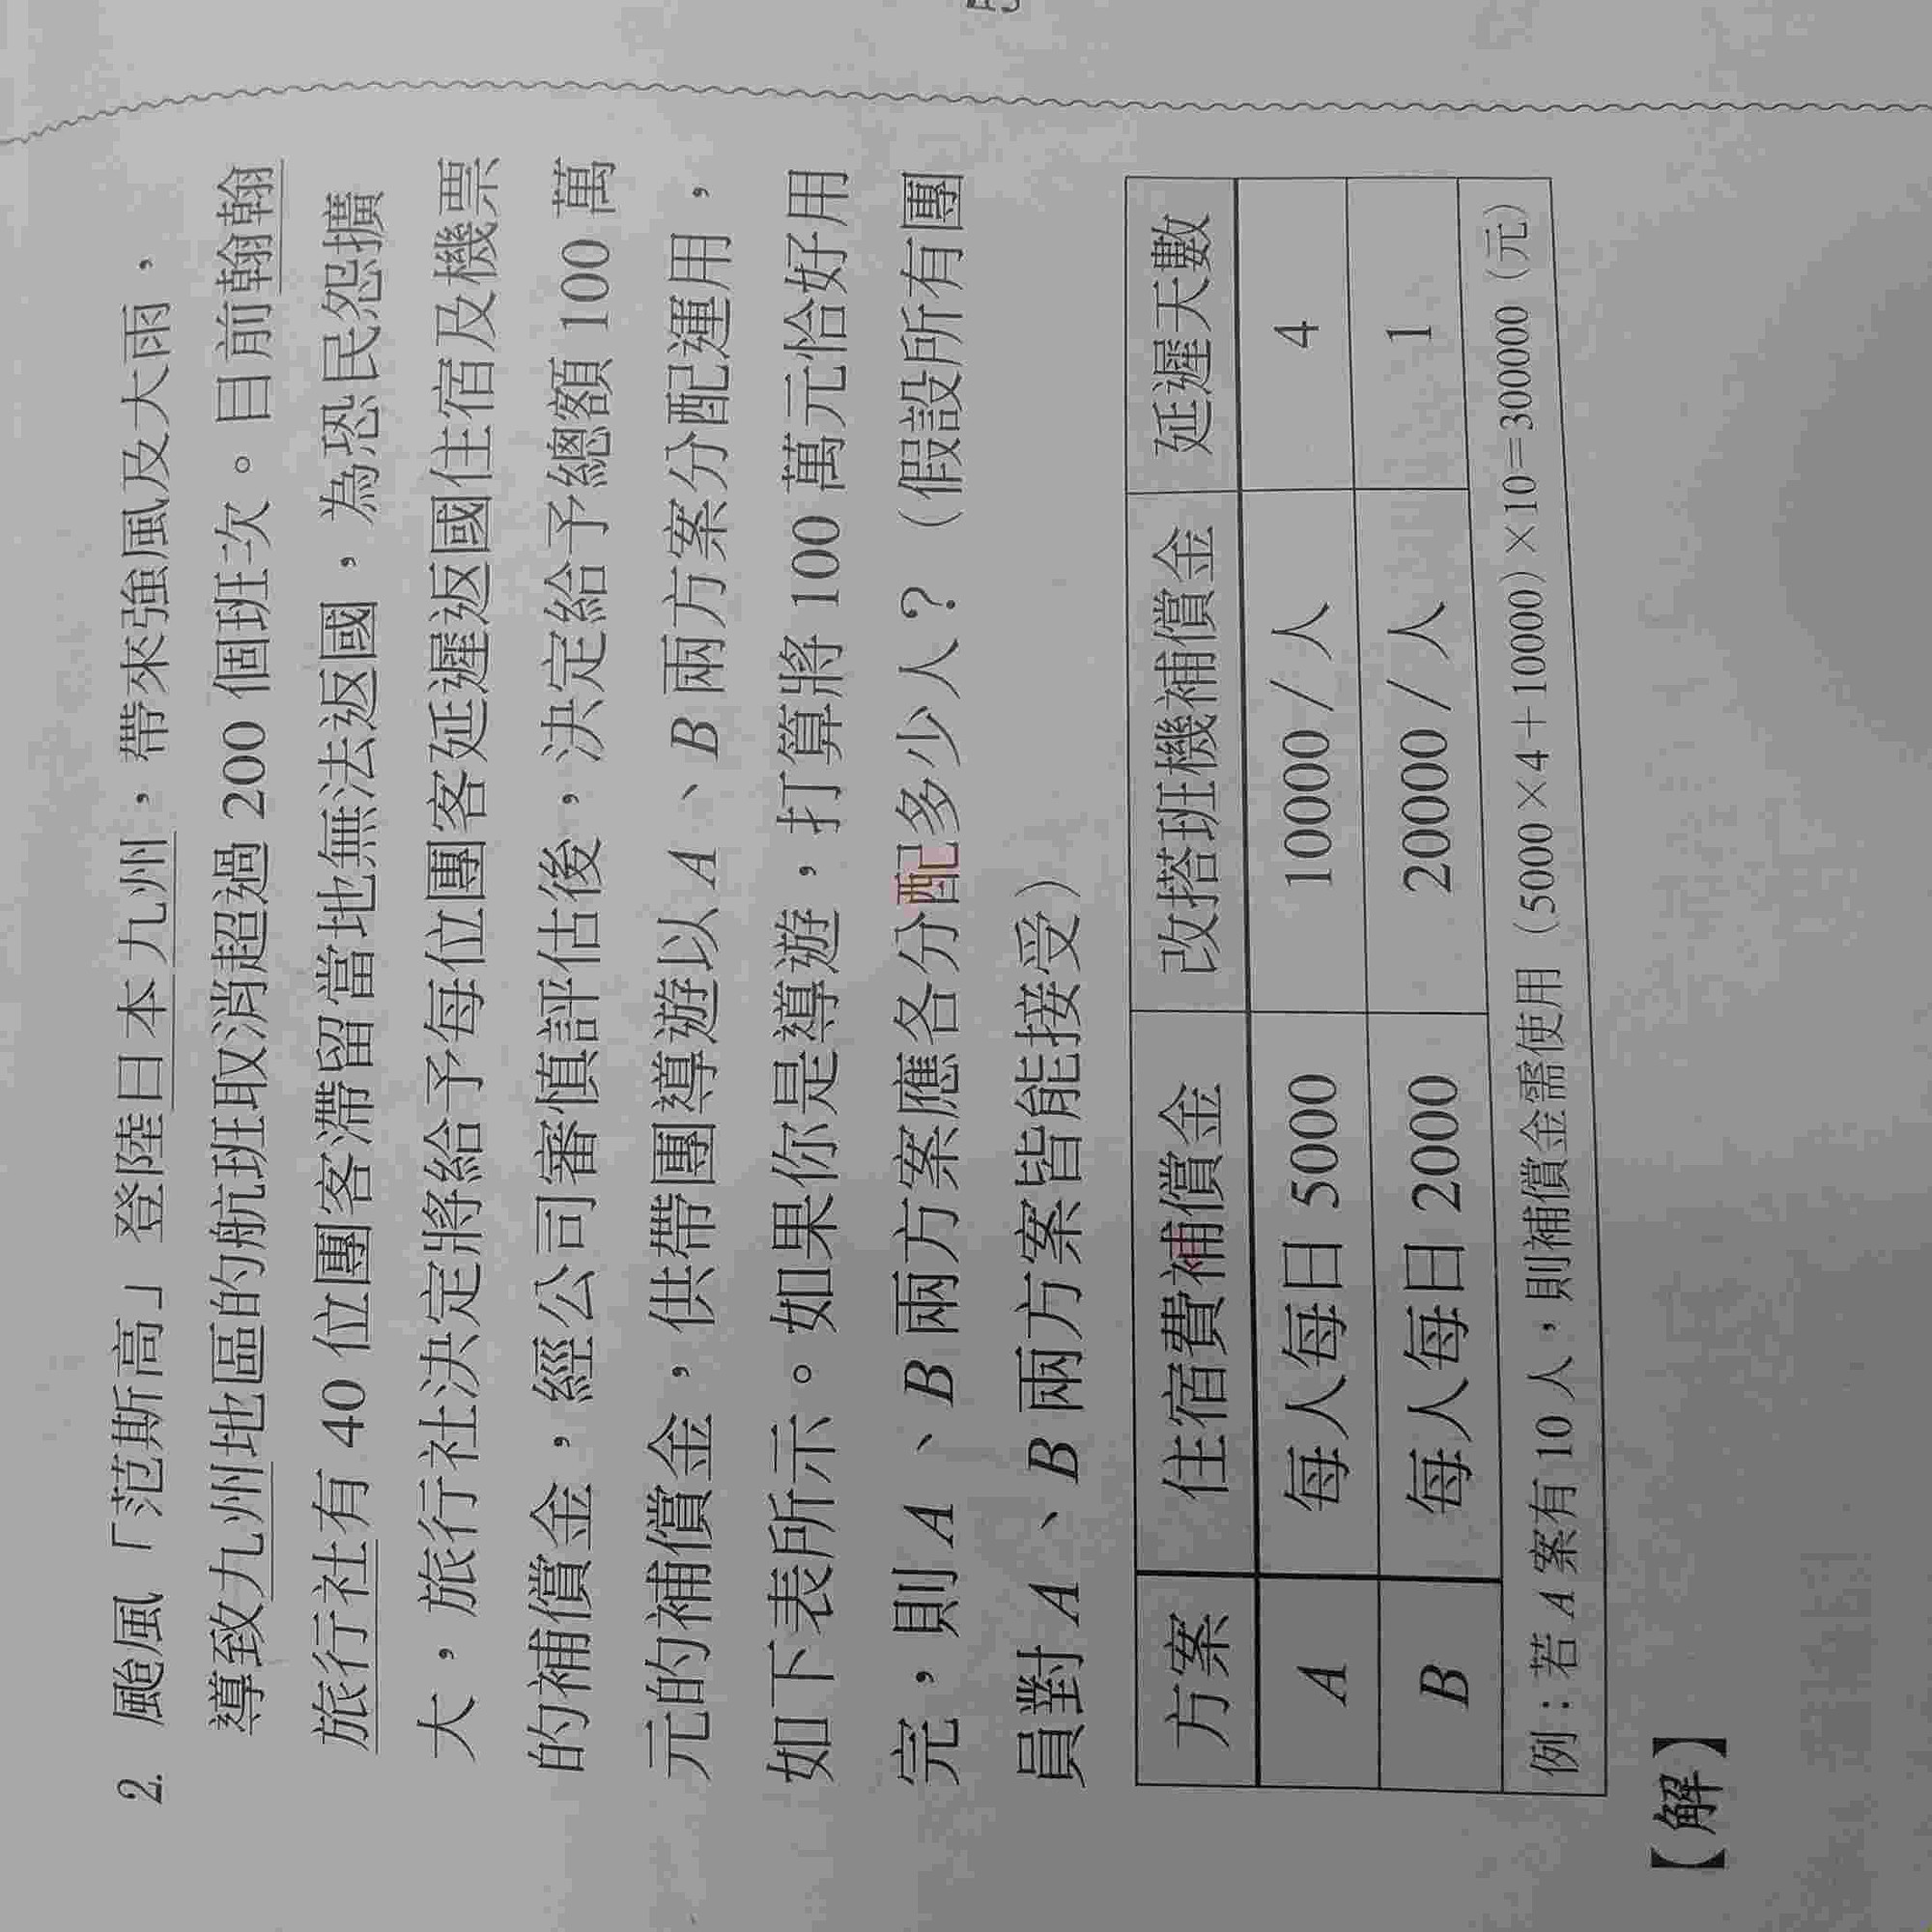 2. 颱風「范斯高」登陸日本九州，帶來強風及大雨，
導致九州地區的航班取消超過 200 個班次。目前翰翰
旅行社有 40 位團客滯留當地無法返國，為恐民怨擴
大，旅行社決定將給予每位團客延遲返國住宿及機票
的補償金，經公司審慎評估後，決定給予總額 100 萬
元的補償金，供帶團導遊以 A、B 兩方案分配運用，
如下表所示。如果你是導遊，打算將 100 萬元恰好用
完，則 A、B 兩方案應各分配多少人？（假設所有團
員對 A、B 兩方案皆能接受）
方案 住宿費補償金 改搭班機補償金 延遲天數
A 每人每日 5000 10000 / 人 4
B 每人每日 2000 20000 / 人 1
例：若 A 案有 10 人，則補償金需使用（5000×4＋10000）×10＝300000（元）
【解】